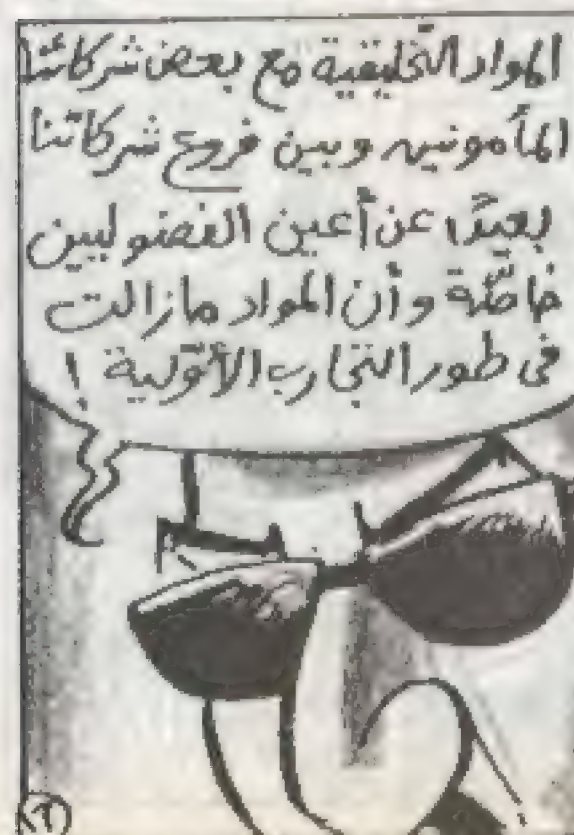 المواد التخليقية مع بعض شركائنا
المأمونين وبين فروع شركاتنا
بعيدًا عن أعين الفضوليين
خاصّة وأن المواد مازالت
فى طور التجارب الأوّلية !